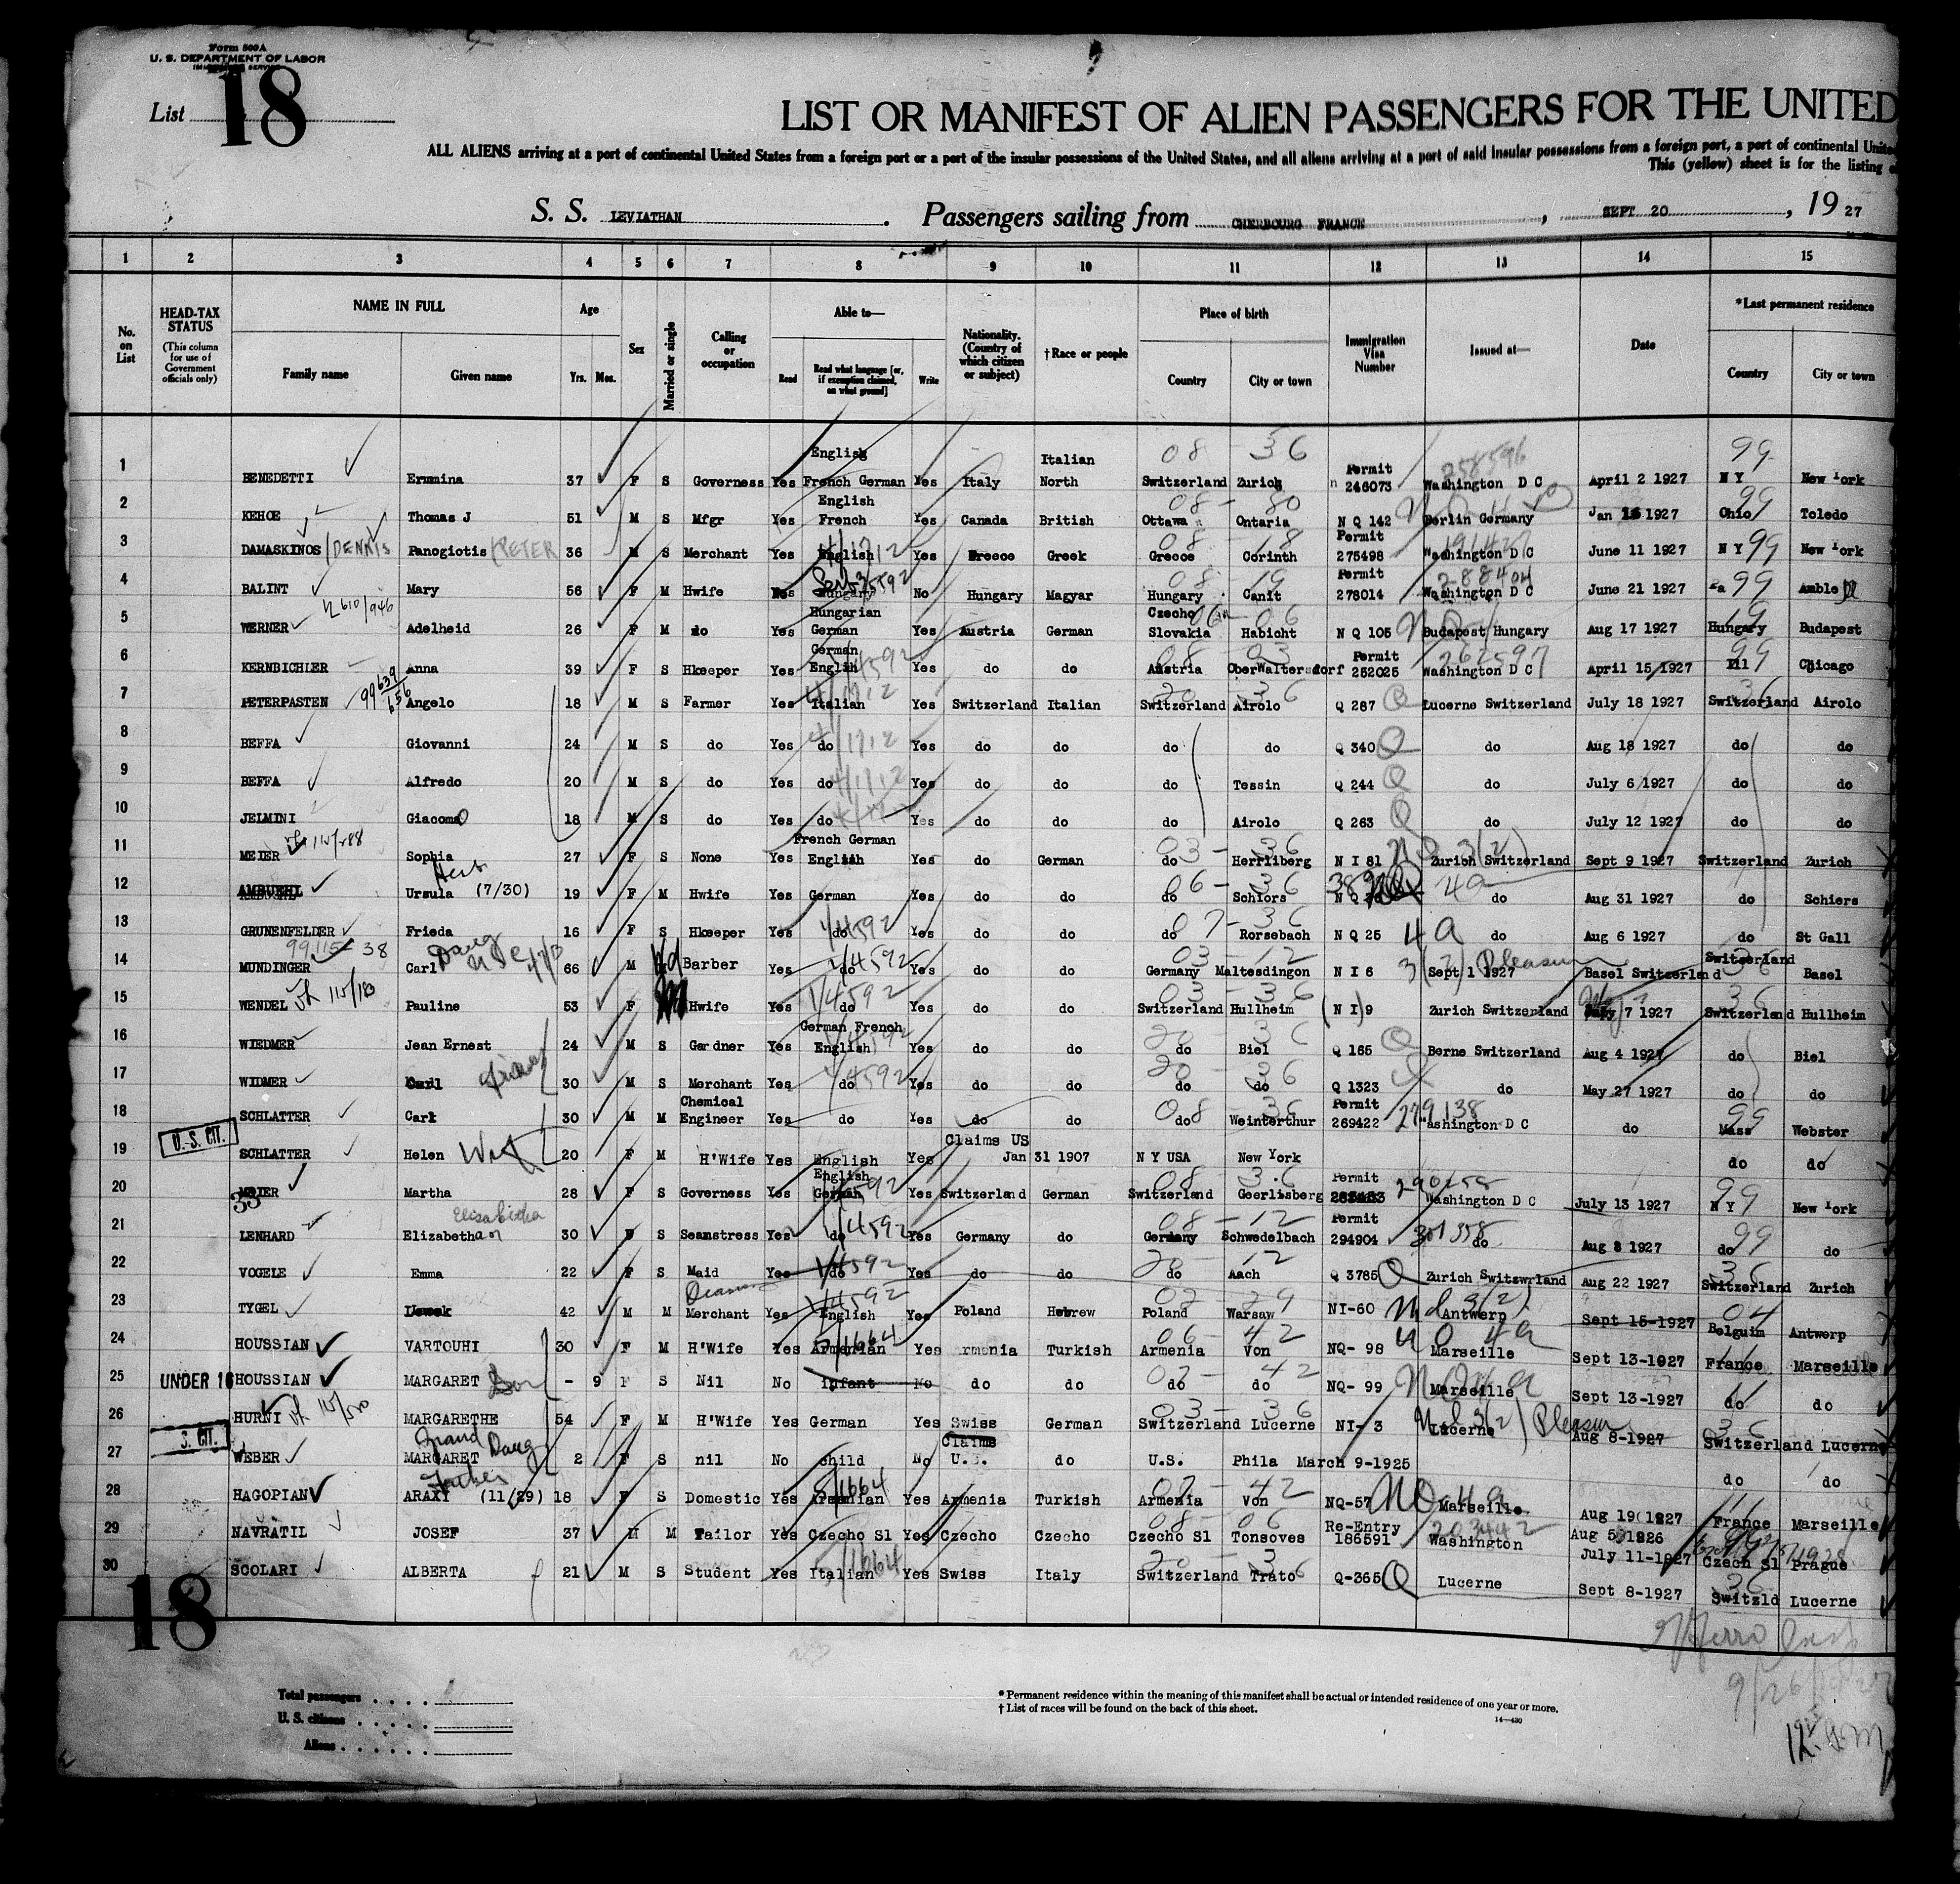 Form 500A
U. S. DEPARTMENT OF LABOR
IMMIGRATION SERVICE
List 18
LIST OR MANIFEST OF ALIEN PASSENGERS FOR THE UNITED
ALL ALIENS arriving at a port of continental United States from a foreign port or a port of the insular possessions of the United States, and all aliens arriving at a port of said insular possessions from a foreign port, a port of continental
This (yellow) sheet is for the listing
S. S. LEVIATHAN. Passengers sailing from CHERBOURG FRANCE, SEPT 20, 19 27
1 2 3 4 5 6 7 8 9 10 11 12 13 14 15
No. on List
HEAD-TAX STATUS (This column for use of Government officials only)
NAME IN FULL
Family name Given name
Age
Yrs. Mos.
Sex
Married or single
Calling or occupation
Able to—
Read
Read what language [or, if exemption claimed, on what ground]
Write
Nationality. (Country of which citizen or subject)
†Race or people
Place of birth
Country City or town
Immigration Visa Number
Issued at—
Date
*Last permanent residence
Country City or town
1 BENEDETTI Ermmina 37 F S Governess Yes English French German Yes Italy Italian North Switzerland Zurich Permit 246073 Washington D C April 2 1927 N Y New York
2 KEHOE Thomas J 51 M S Mfgr Yes English French Yes Canada British Ottawa Ontaria N Q 142 Berlin Germany Jan 1927 Ohio Toledo
3 DAMASKINOS /DENNIS Panogiotis /PETER 36 M S Merchant Yes English Yes Greece Greek Greece Corinth Permit 275498 Washington D C June 11 1927 N Y New York
4 BALINT Mary 56 F M Hwife Hungary No Hungary Magyar Hungary Canit Permit 278014 Washington D C June 21 1927 Pa Amble
5 WERNER Adelheid 26 F M do Yes Hungarian German Yes Austria German Czecho Slovakia Habicht N Q 105 Budapest Hungary Aug 17 1927 Hungary Budapest
6 KERNBICHLER Anna 39 F S Hkeeper Yes German English Yes do do Austria OberWaltersdorf Permit 252025 Washington D C April 15 1927 Ill Chicago
7 PETERPASTEN Angelo 18 M S Farmer Yes Italian Yes Switzerland Italian Switzerland Airolo Q 287 Lucerne Switzerland July 18 1927 Switzerland Airolo
8 BEFFA Giovanni 24 M S do Yes do Yes do do do do Q 340 do Aug 18 1927 do do
9 BEFFA Alfredo 20 M S do Yes do Yes do do do Tessin Q 244 do July 6 1927 do do
10 JELMINI Giacomo 18 M S do Yes do Yes do do do Airolo Q 263 do July 12 1927 do do
11 MEIER Sophia 27 F S None Yes French German English Yes do German do Herrliberg N I 81 Zurich Switzerland Sept 9 1927 Switzerland Zurich
12 AMBUEHL Ursula (7/30) 19 F M Hwife Yes German Yes do do do Schiors N Q do Aug 31 1927 do Schiers
13 GRUNENFELDER Frieda 16 F S Hkeeper Yes do Yes do do do Rorsebach N Q 25 do Aug 6 1927 do St Gall
14 MUNDINGER Carl 66 M Wd Barber Yes do Yes do do Germany Maltesdingon N I 6 Sept 1 1927 Basel Switzerland Switzerland Basel
15 WENDEL Pauline 53 F M Hwife Yes do Yes do do Switzerland Hullheim (N I) 9 Zurich Switzerland 7 1927 Switzerland Hullheim
16 WIEDMER Jean Ernest 24 M S Gardner Yes German French English Yes do do do Biel Q 165 Berne Switzerland Aug 4 1927 do Biel
17 WIDMER Carl 30 M S Merchant Yes do Yes do do do do Q 1323 do May 27 1927 do do
18 SCHLATTER Carl 30 M M Chemical Engineer Yes do Yes do do do Weinterthur Permit 269422 Washington D C do Mass Webster
U.S. CIT.
19 SCHLATTER Helen Wife 20 F M H'Wife Yes English Yes Claims US Jan 31 1907 N Y USA New York do do
20 MEIER Martha 28 F S Governess Yes English German Yes Switzerland German Switzerland Geerlisberg Permit Washington D C July 13 1927 N Y New York
21 LENHARD Elizabetha Elisabetha 30 F S Seamstress Yes do Yes Germany do Germany Schwedelbach Permit 294904 do Aug 8 1927 do do
22 VOGELE Emma 22 F S Maid Yes do Yes do do do Aach Q 3785 Zurich Switzwrland Aug 22 1927 Switzerland Zurich
23 TYGEL 42 M M Merchant Yes English Yes Poland Hebrew Poland Warsaw NI-60 Antwerp Sept 15-1927 Belguim Antwerp
24 HOUSSIAN VARTOUHI 30 F M H'Wife Yes Armenian Yes Armenia Turkish Armenia Von NQ- 98 Marseille Sept 13-1927 France Marseille
25 UNDER 16 HOUSSIAN MARGARET - 9 F S Nil No Infant No do do do do NQ- 99 Marseille Sept 13-1927 do do
26 HURNI MARGARETHE 54 F M H'Wife Yes German Yes Swiss German Switzerland Lucerne NI- 3 Lucerne Pleasure Aug 8-1927 Switzerland Lucerne
S. CIT.
27 WEBER MARGARET Grand Daug 2 F S nil No child No Claims U.S. do U.S. Phila March 9-1925 do do
28 HAGOPIAN ARAXY (11/29) 18 F S Domestic Yes Armenian Yes Armenia Turkish Armenia Von NQ-57 Marseille Aug 19 1927 France Marseille
29 NAVRATIL JOSEF 37 M M Tailor Yes Czecho Sl Yes Czecho Czecho Czecho Sl Tonsoves Re-Entry 186591 Washington Aug 5 1926 July 11-1927 Czech Sl Prague
30 SCOLARI ALBERTA 21 M S Student Yes Italian Yes Swiss Italy Switzerland Trato Q-365 Lucerne Sept 8-1927 Switzld Lucerne
18
9/26/1927
Total passengers
U. S. citizens
Aliens
* Permanent residence within the meaning of this manifest shall be actual or intended residence of one year or more.
† List of races will be found on the back of this sheet.
14—430